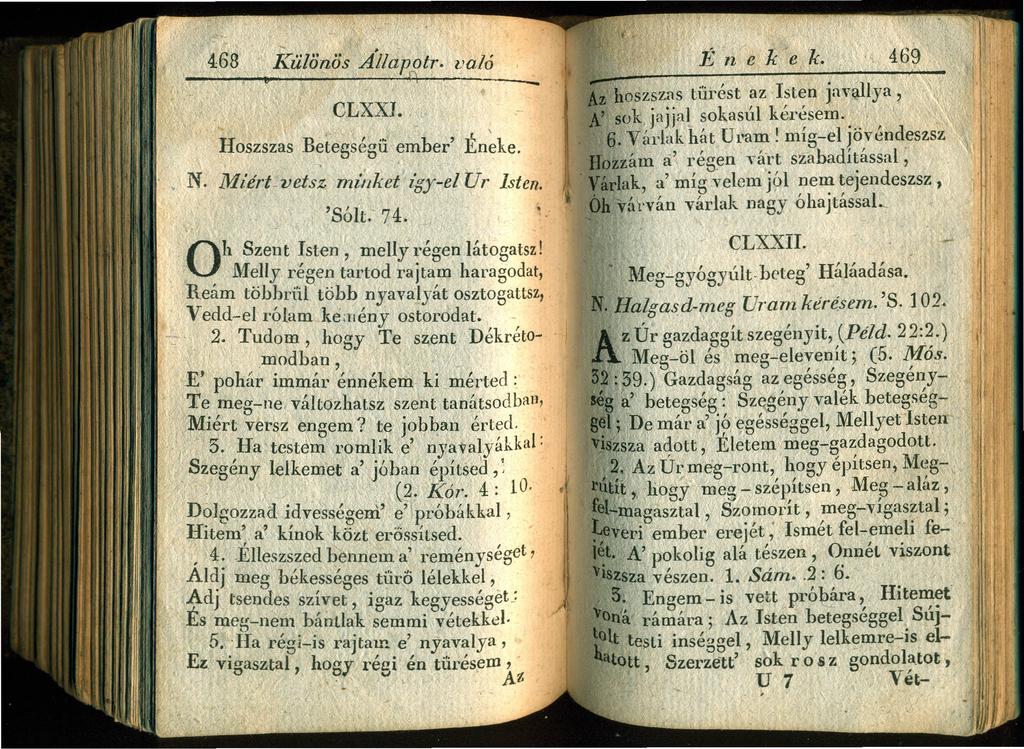 468 Különös Állapotr. való
CLXXI.
Hoszszas Betegségű ember' Éneke.
N. Miért vetsz minket igy-el Ur Isten.
'Sólt. 74.
Oh Szent Isten, melly régen látogatsz!
Melly régen tartod rajtam haragodat,
Reám többrűl több nyavalyát osztogattsz,
Vedd-el rólam kemény ostorodat.
2. Tudom, hogy Te szent Dékréto-
modban,
E' pohár immár énnékem ki mérted:
Te meg-ne változhatsz szent tanátsodban,
Miért versz engem? te jobban érted.
3. Ha testem romlik e' nyavalyákkal:
Szegény lelkemet a' jóban építsed,
(2. Kór. 4: 10.
Dolgozzad idvességem' e' próbákkal,
Hitem' a' kínok közt erőssítsed.
4. Élleszszed bennem a' reménységet,
Áldj meg békességes tűrő lélekkel,
Adj tsendes szívet, igaz kegyességet:
És meg-nem bántlak semmi vétekkel.
5. Ha régi-is rajtam e' nyavalya,
Ez vigasztal, hogy régi én tűrésem,
Az
Énekek. 469
Az hoszszas tűrést az Isten javallya,
A' sok jajjal sokasúl kérésem.
6. Várlak hát Uram! míg-el jövéndeszsz
Hozzám a' régen várt szabadítással,
Várlak, a' míg velem jól nem tejendeszsz,
Óh várván várlak nagy óhajtással.
CLXXII.
Meg-gyógyúlt beteg' Háláadása.
N. Halgasd-meg Uram kérésem. 'S. 102.
Az Úr gazdaggít szegényit, (Péld. 22:2.)
Meg-öl és meg-elevenít; (5. Mós.
32:39.) Gazdagság az egésség, Szegény-
ség a' betegség: Szegény valék betegség-
gel; De már a' jó egésséggel, Mellyet Isten
viszsza adott, Életem meg-gazdagodott.
2. Az Ur meg-ront, hogy építsen, Meg-
rútít, hogy meg-szépítsen, Meg-aláz,
fel-magasztal, Szomorít, meg-vígasztal;
Leveri ember erejét, Ismét fel-emeli fe-
jét. A' pokolig alá tészen, Onnét viszont
viszsza vészen. 1. Sám. 2: 6.
3. Engem-is vett próbára, Hitemet
voná rámára; Az Isten betegséggel Súj-
tolt testi inséggel, Melly lelkemre-is el-
hatott, Szerzett' sok rosz gondolatot,
U 7 Vét-